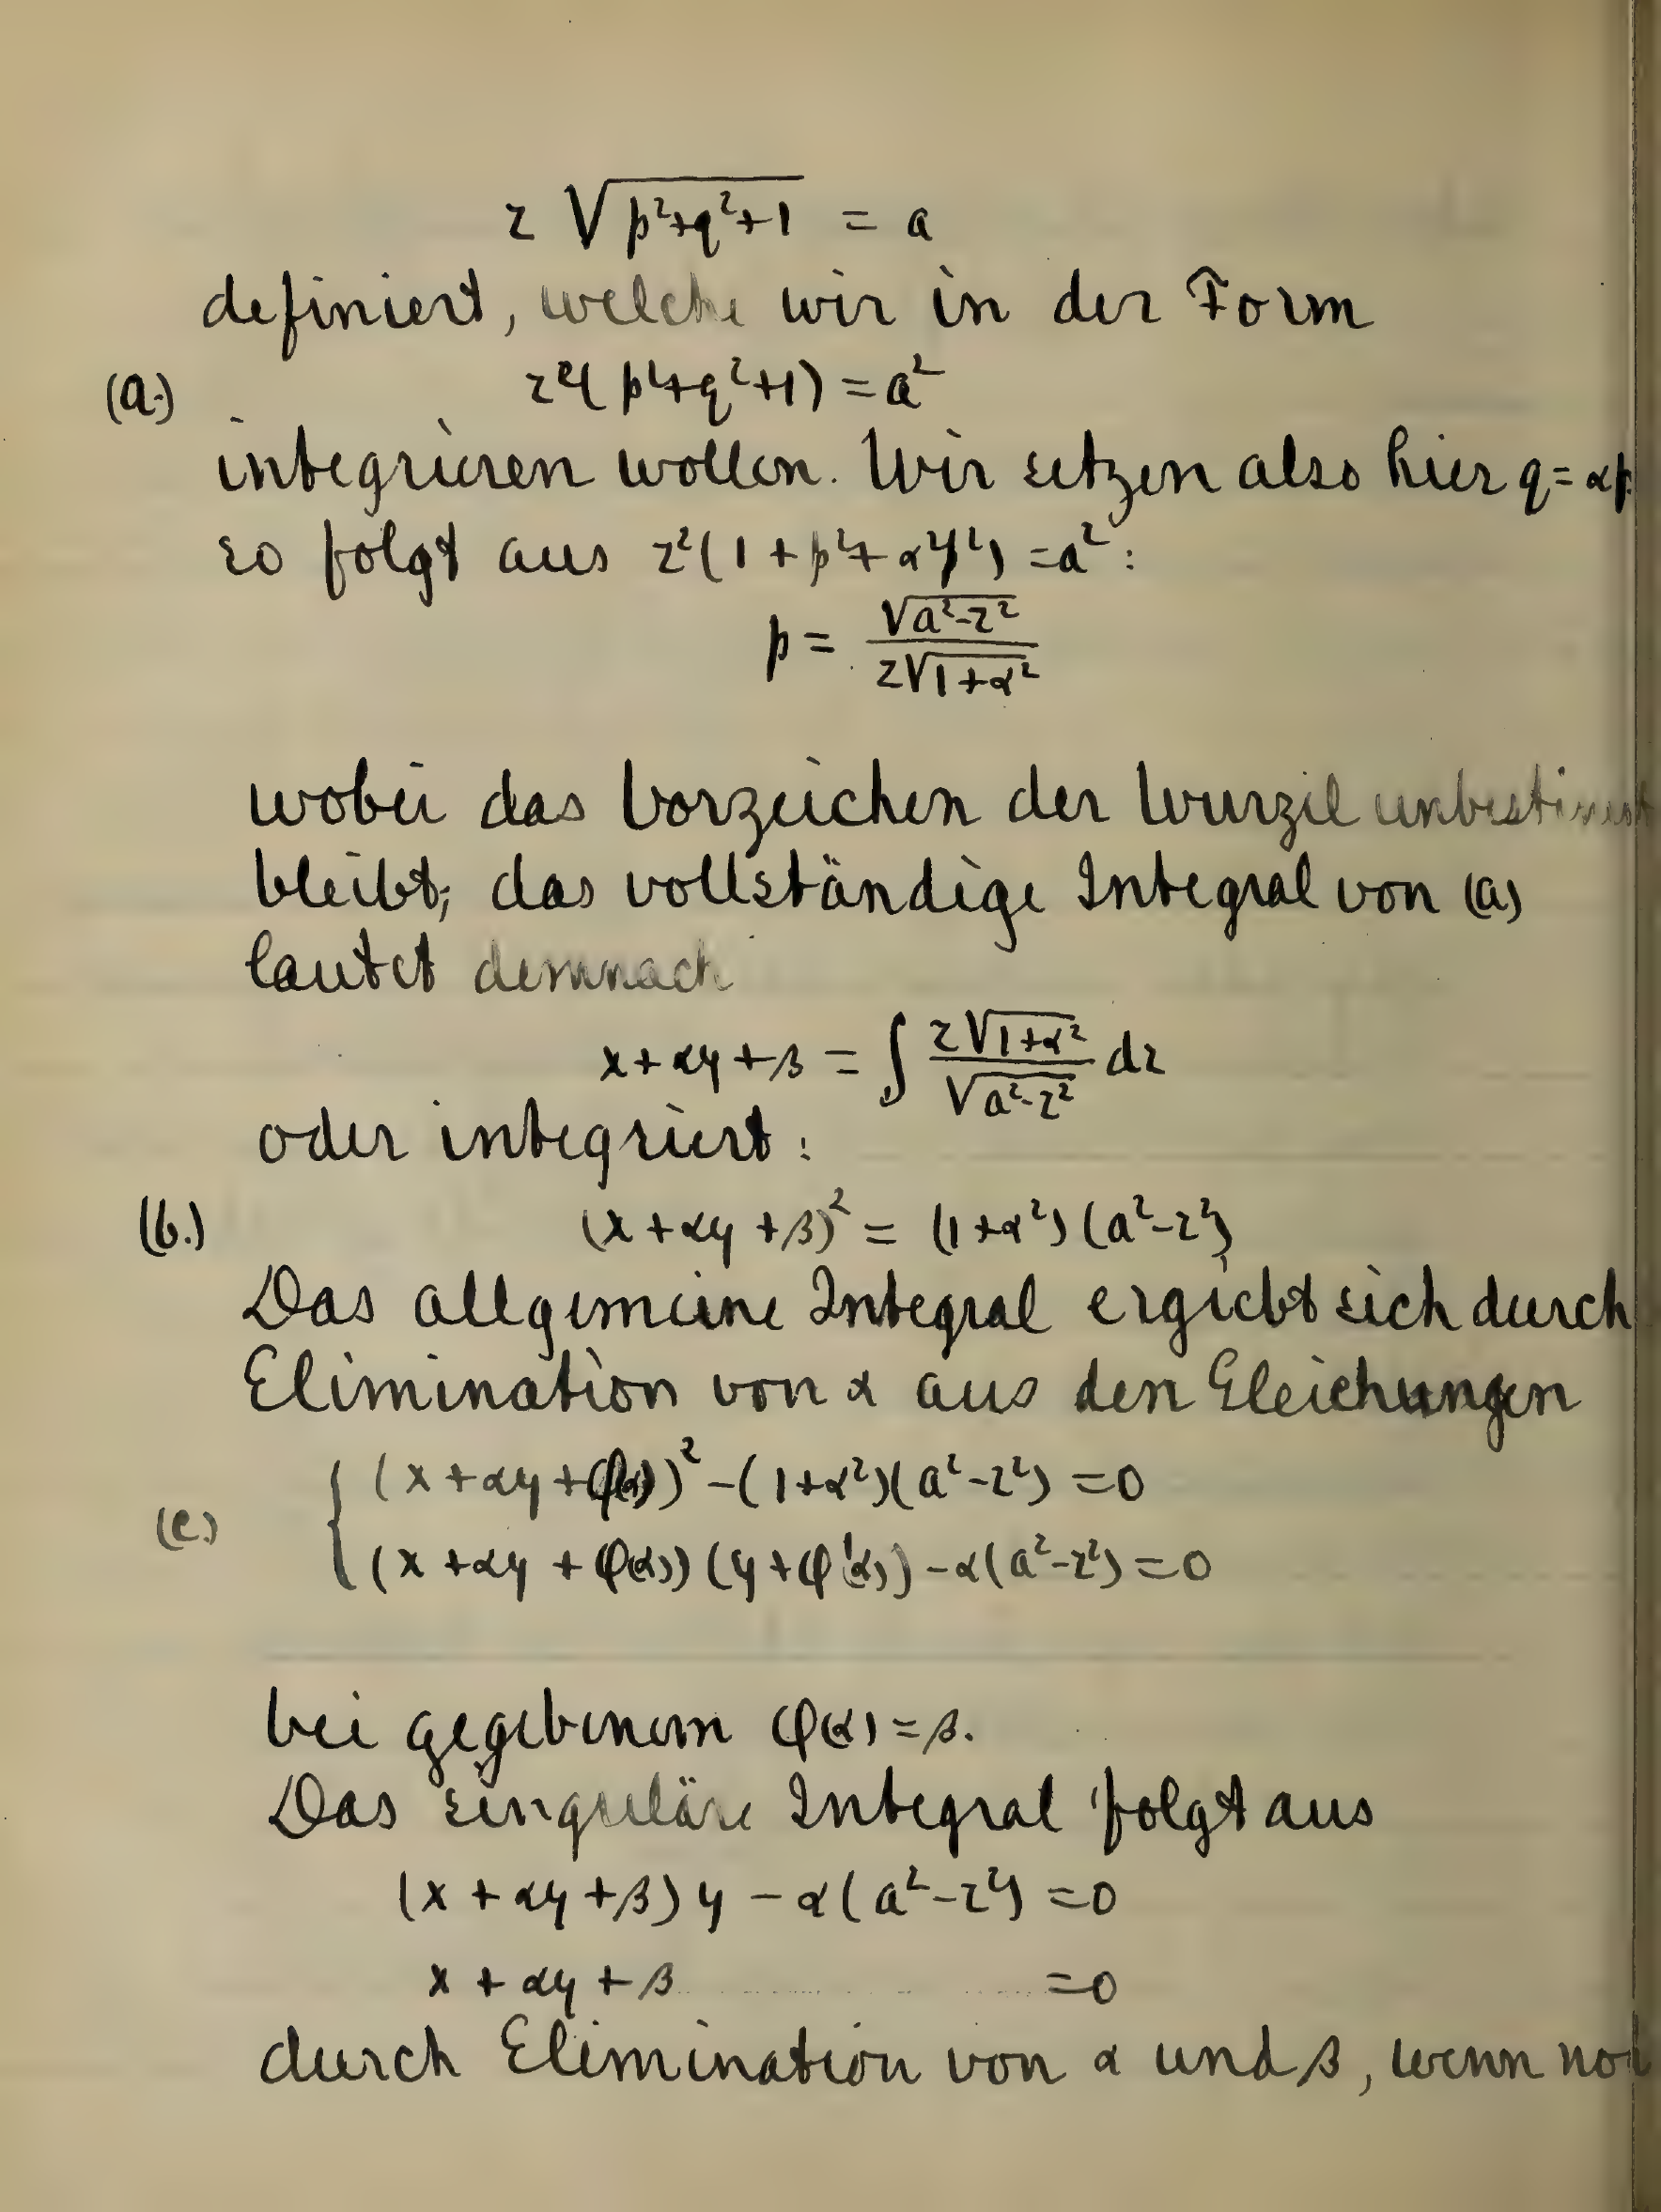 z √(p²+q²+1) = a
definiert, welche wir in der Form
(a.) z²(p²+q²+1) = a²
integrieren wollen. Wir setzen also hier q = αp
so folgt aus z²(1 + p² + α²p²) = a²:
p = √(a²-z²) / z√(1+α²)
wobei das Vorzeichen der Wurzel unbestimmt
bleibt; das vollständige Integral von (a)
lautet demnach
x + αy + β = ∫ z√(1+α²) / √(a²-z²) dz
oder integriert:
(b.) (x + αy + β)² = (1+α²)(a²-z²)
Das allgemeine Integral ergiebt sich durch
Elimination von α aus den Gleichungen
(c.) { (x + αy + φ(α))² - (1+α²)(a²-z²) = 0
(x + αy + φ(α))(y + φ'(α)) - α(a²-z²) = 0
bei gegebenem φ(α) = β.
Das singuläre Integral folgt aus
(x + αy + β) y - α(a²-z²) = 0
x + αy + β = 0
durch Elimination von α und β, wenn